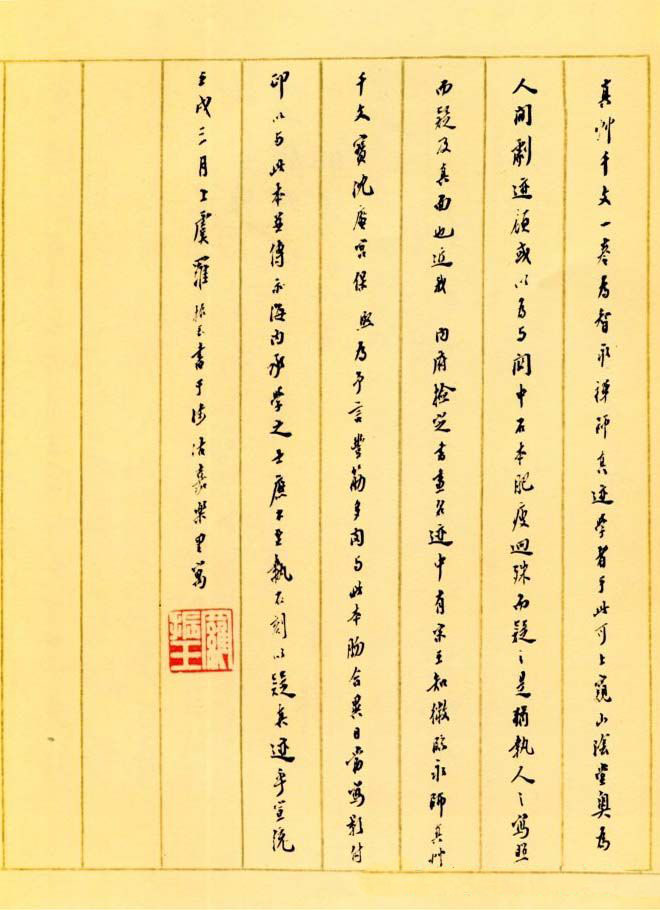 真艸千文一卷為智永禪師真迹學者于此可上窺山陰堂奧為
人間劇迹顧或以為与關中石本肥瘦迥殊而疑之是猶執人之寫照
而疑及真面也近我 內府檢定書畫名迹中有宋王知微臨永師真艸
千文寶沈庵宮保 熙為予言豐筋多肉与此本脗合異日當寫影付
印以与此本並傳示海內承學之士庶不至執石刻以疑真迹乎宣統
壬戌三月上虞羅振玉書于津沽嘉樂里寓
羅振玉